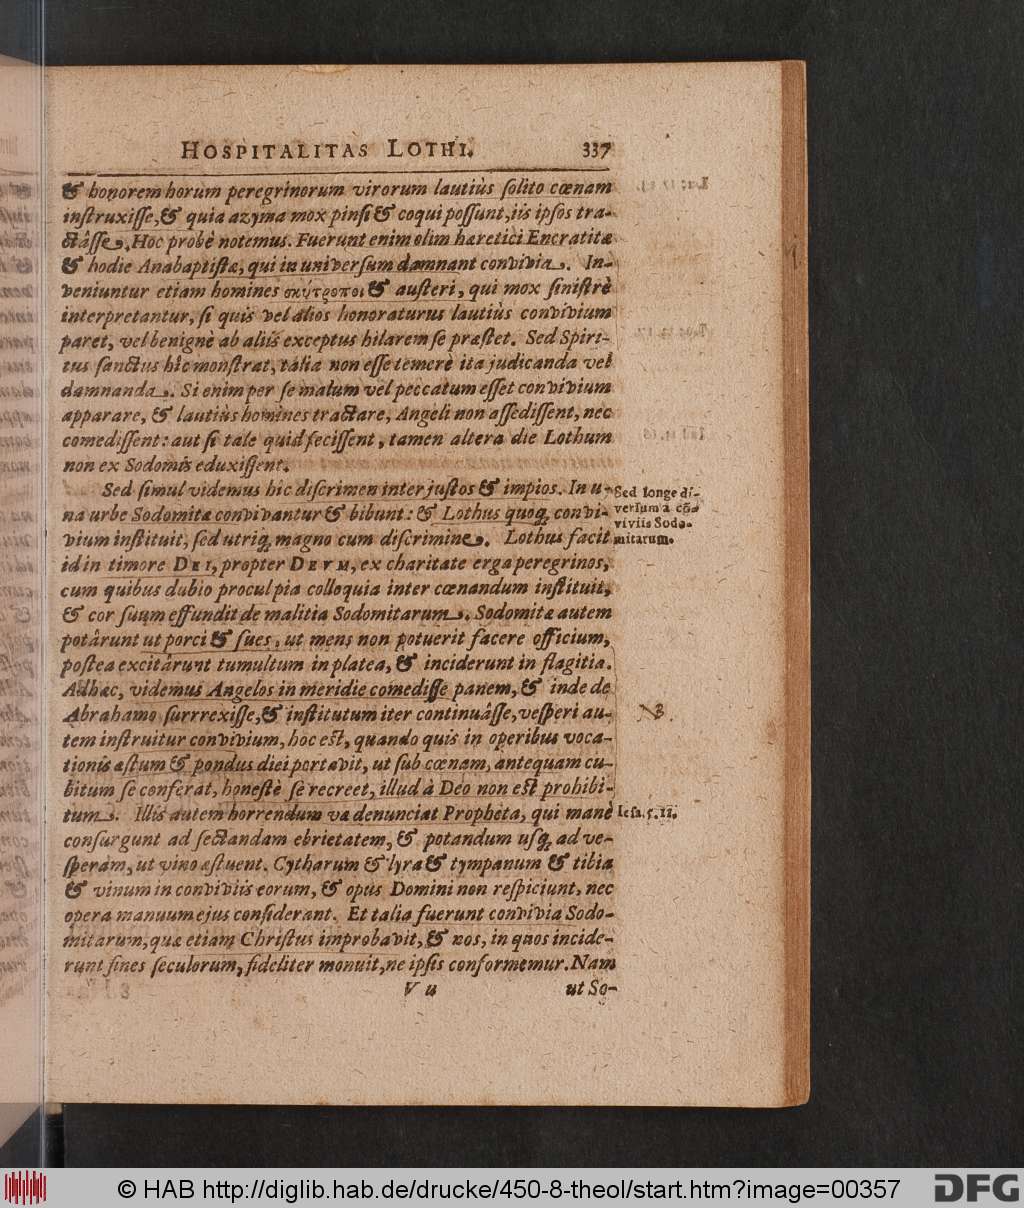 HOSPITALITAS LOTHI. 337
& honorem horum peregrinorum virorum lautiùs ſolito cœnam
inſtruxiſſe, & quia azyma mox pinſi & coqui poſſunt, iis ipſos tra-
ctâſſe. Hoc probè notemus. Fuerunt enim olim hæretici Encratitæ
& hodie Anabaptiſtæ, qui in univerſum damnant convivia. In-
veniuntur etiam homines σκύτροποι & auſteri, qui mox ſiniſtrè
interpretantur, ſi quis vel alios honoraturus lautiùs convivium
paret, vel benignè ab aliis exceptus hilarem ſe præſtet. Sed Spiri-
tus ſanctus hîc monſtrat, talia non eſſe temerè ita judicanda vel
damnanda. Si enim per ſe malum vel peccatum eſſet convivium
apparare, & lautiùs homines tractare, Angeli non aſſediſſent, nec
comediſſent: aut ſi tale quid feciſſent, tamen altera die Lothum
non ex Sodomis eduxiſſent.
Sed ſimul videmus hîc diſcrimen inter juſtos & impios. In u-
na urbe Sodomitæ convivantur & bibunt: & Lothus quoq; convi-
vium inſtituit, ſed utriq; magno cum diſcrimine. Lothus facit
id in timore DEI, propter DEVM, ex charitate erga peregrinos,
cum quibus dubio procul pia colloquia inter cœnandum inſtituit,
& cor ſuum effundit de malitia Sodomitarum. Sodomitæ autem
potârunt ut porci & ſues, ut mens non potuerit facere officium,
poſtea excitârunt tumultum in platea, & inciderunt in flagitia.
Adhæc, videmus Angelos in meridie comediſſe panem, & inde de
Abrahamo ſurrrexiſſe, & inſtitutum iter continuâſſe, veſperi au-
tem inſtruitur convivium, hoc eſt, quando quis in operibus voca-
tionis æſtum & pondus diei portavit, ut ſub cœnam, antequam cu-
bitum ſe conferat, honeſtè ſe recreet, illud à Deo non eſt prohibi-
tum. Illis autem horrendum væ denunciat Propheta, qui manè
conſurgunt ad ſectandam ebrietatem, & potandum uſq; ad ve-
ſperam, ut vino æſtuent. Cytharum & lyra & tympanum & tibia
& vinum in conviviis eorum, & opus Domini non reſpiciunt, nec
opera manuum ejus conſiderant. Et talia fuerunt convivia Sodo-
mitarum, quæ etiam Chriſtus improbavit, & nos, in quos incide-
runt fines ſeculorum, fideliter monuit, ne ipſis conformemur. Nam
V u ut So-
Sed longe di-
verſum à cõ-
viviis Sodo-
mitarum.
NB.
Ieſa. 5. 11.
© HAB http://diglib.hab.de/drucke/450-8-theol/start.htm?image=00357
DFG